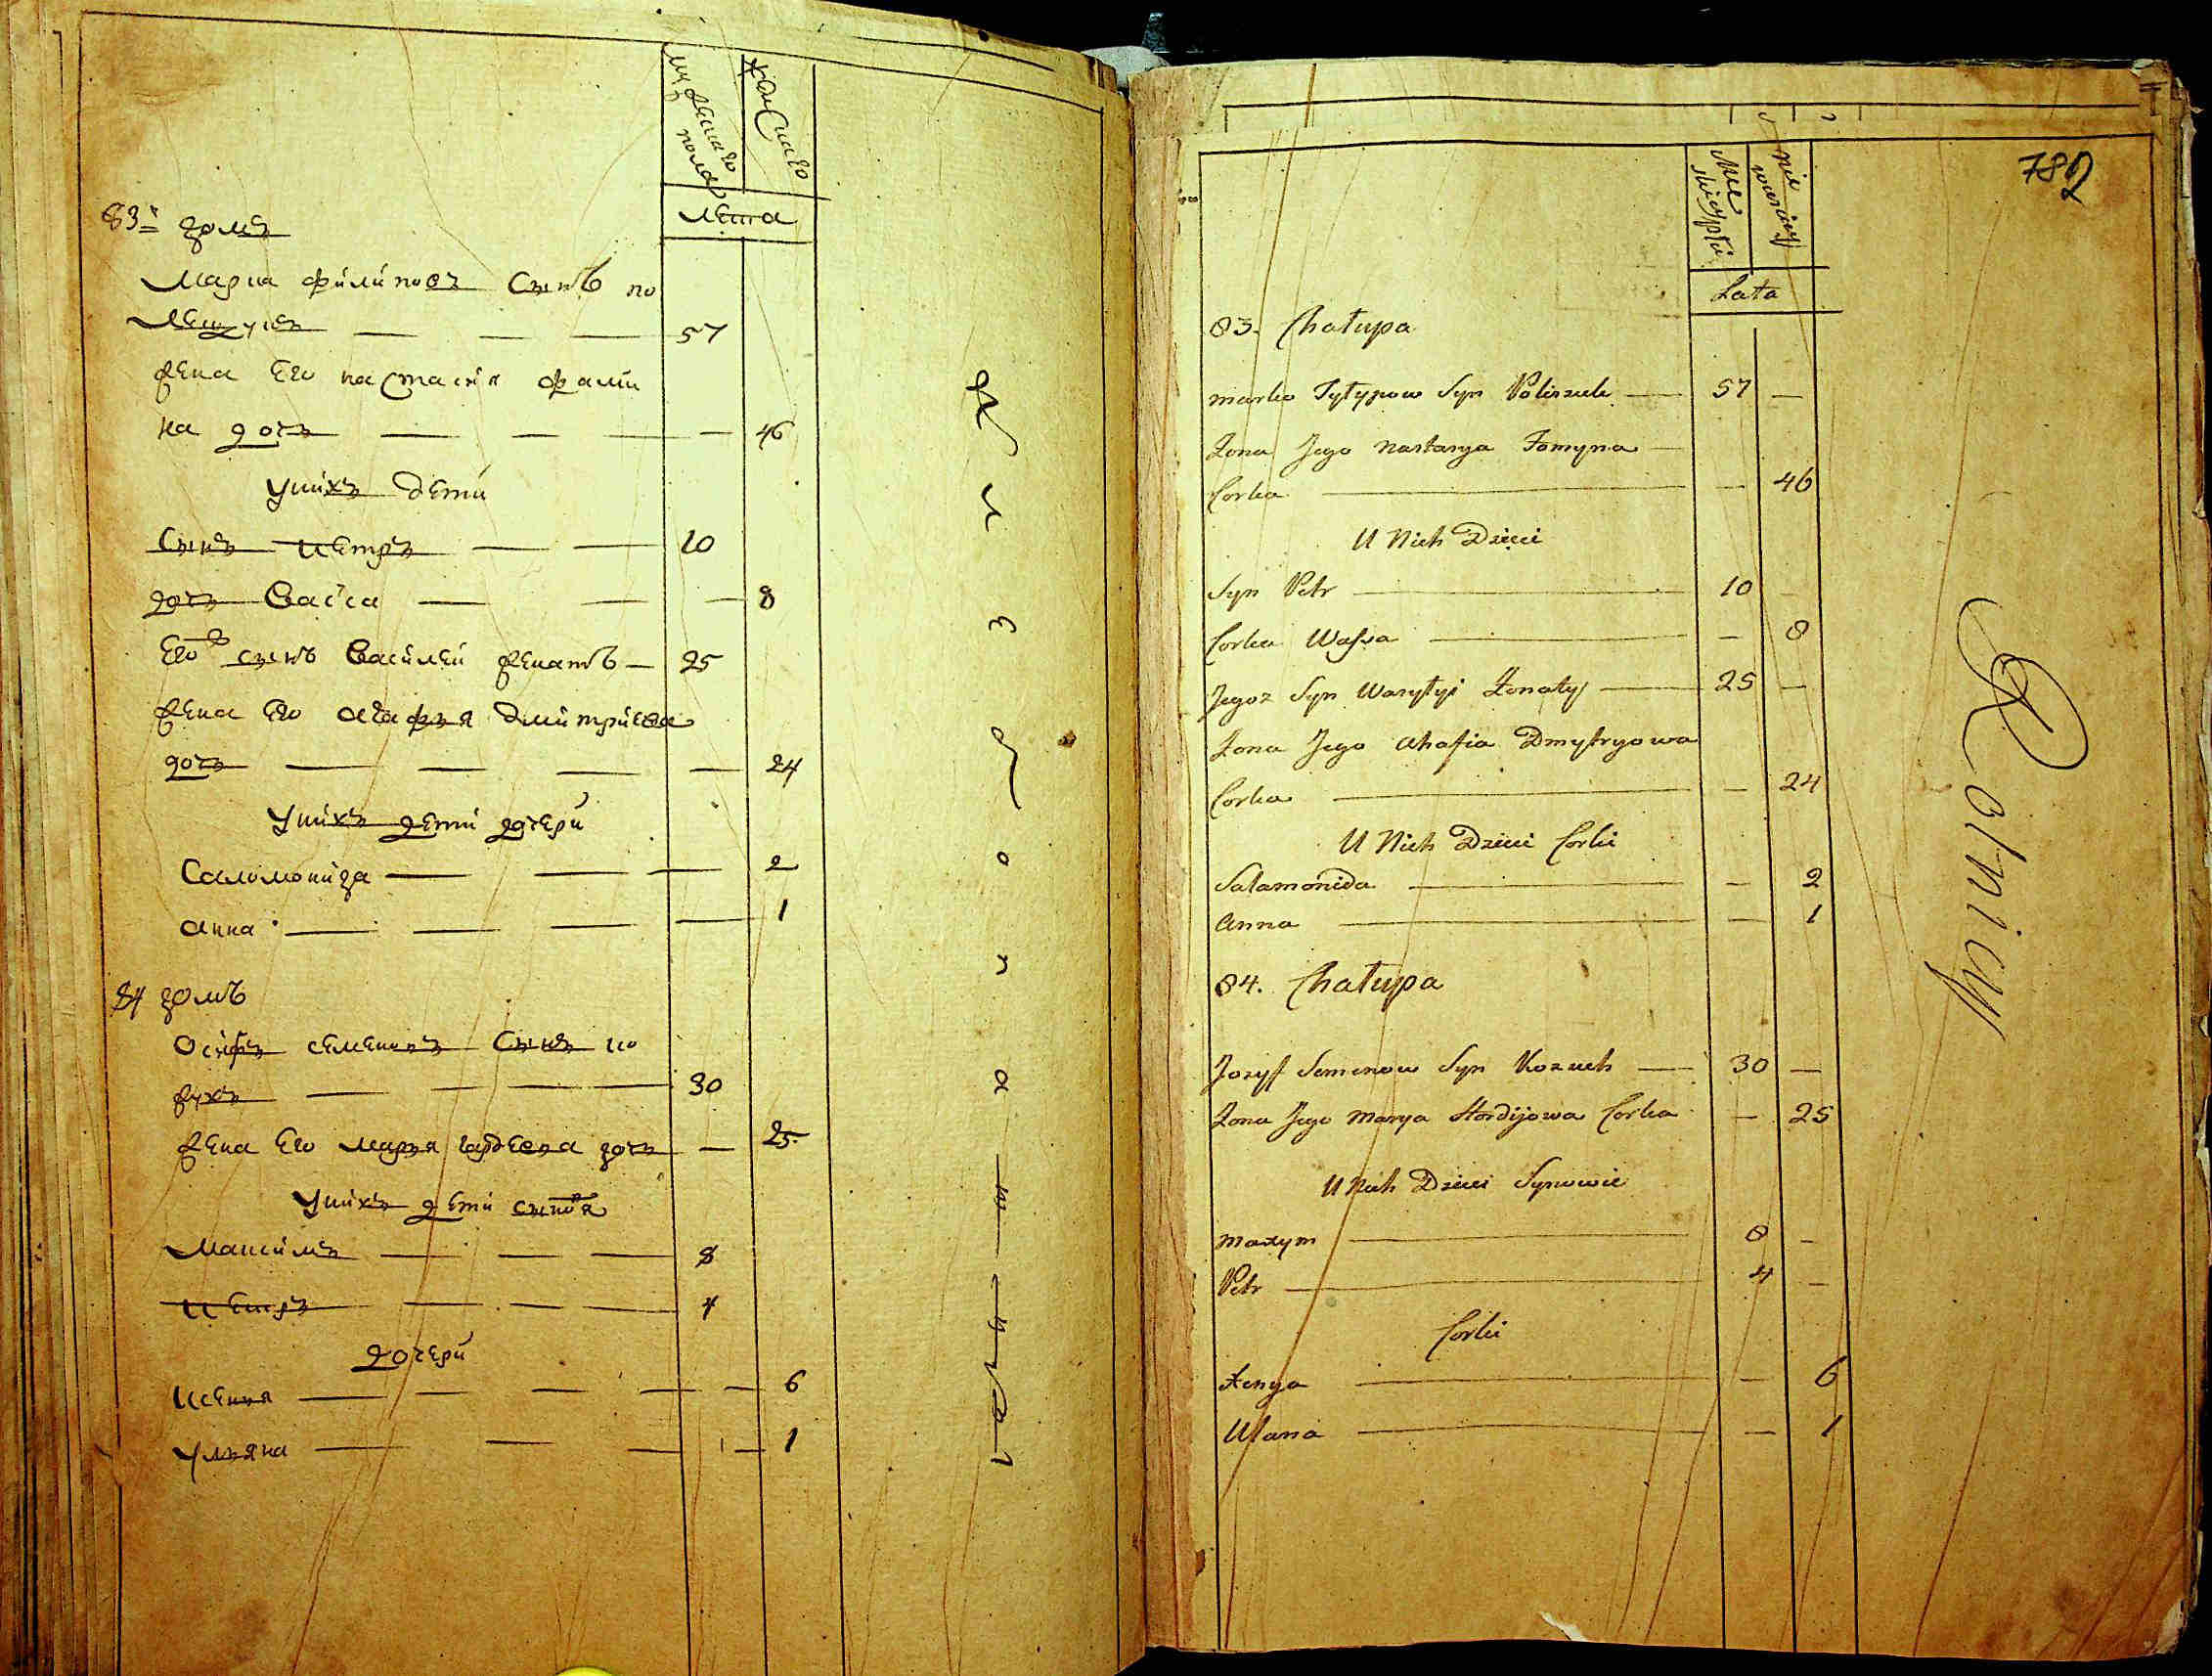 мужеска го полу
женскаго
лета
83й домъ
Марка филиповъ Сынъ по
лещукъ 57
жена Его настасия фоми
на дочъ 46
Унихъ дети
Сынъ Петръ 10
дочъ Васса 8
Егожъ сынъ Василей женатъ 25
жена Его агафия дмитриева
дочъ 24
Унихъ дети дочери
Саломонида 2
анна 1
84 домъ
Осифъ семеновъ Сынъ ко
жухъ 30
жена Его Мария гордеева дочъ 25
Унихъ дети сыновя
Максимъ 8
Петръ 4
дочери
Ксения 6
Улияна 1
782
Męskiey płci
Lata
83. Chałupa
marko Fyłypow Syn Poliszuk 57
Żona Jego Nastasya Fomyna
Corka 46
U Nich Dzieci
Syn Petr 10
Corka Wassa 8
Jegoż Syn Wasyłyi Żonaty 25
Żona Jego Ahafia Dmytryowa
Corka 24
U Nich Dzieci Corki
Salamonida 2
Anna 1
84. Chałupa
Jozyf Semenow Syn Kozuch 30
Żona Jego Marya Hordijowa Corka 25
U Nich Dzieci Synowie
Maxym 8
Petr 4
Corki
Xenya 6
Ulana 1
Rolnicy